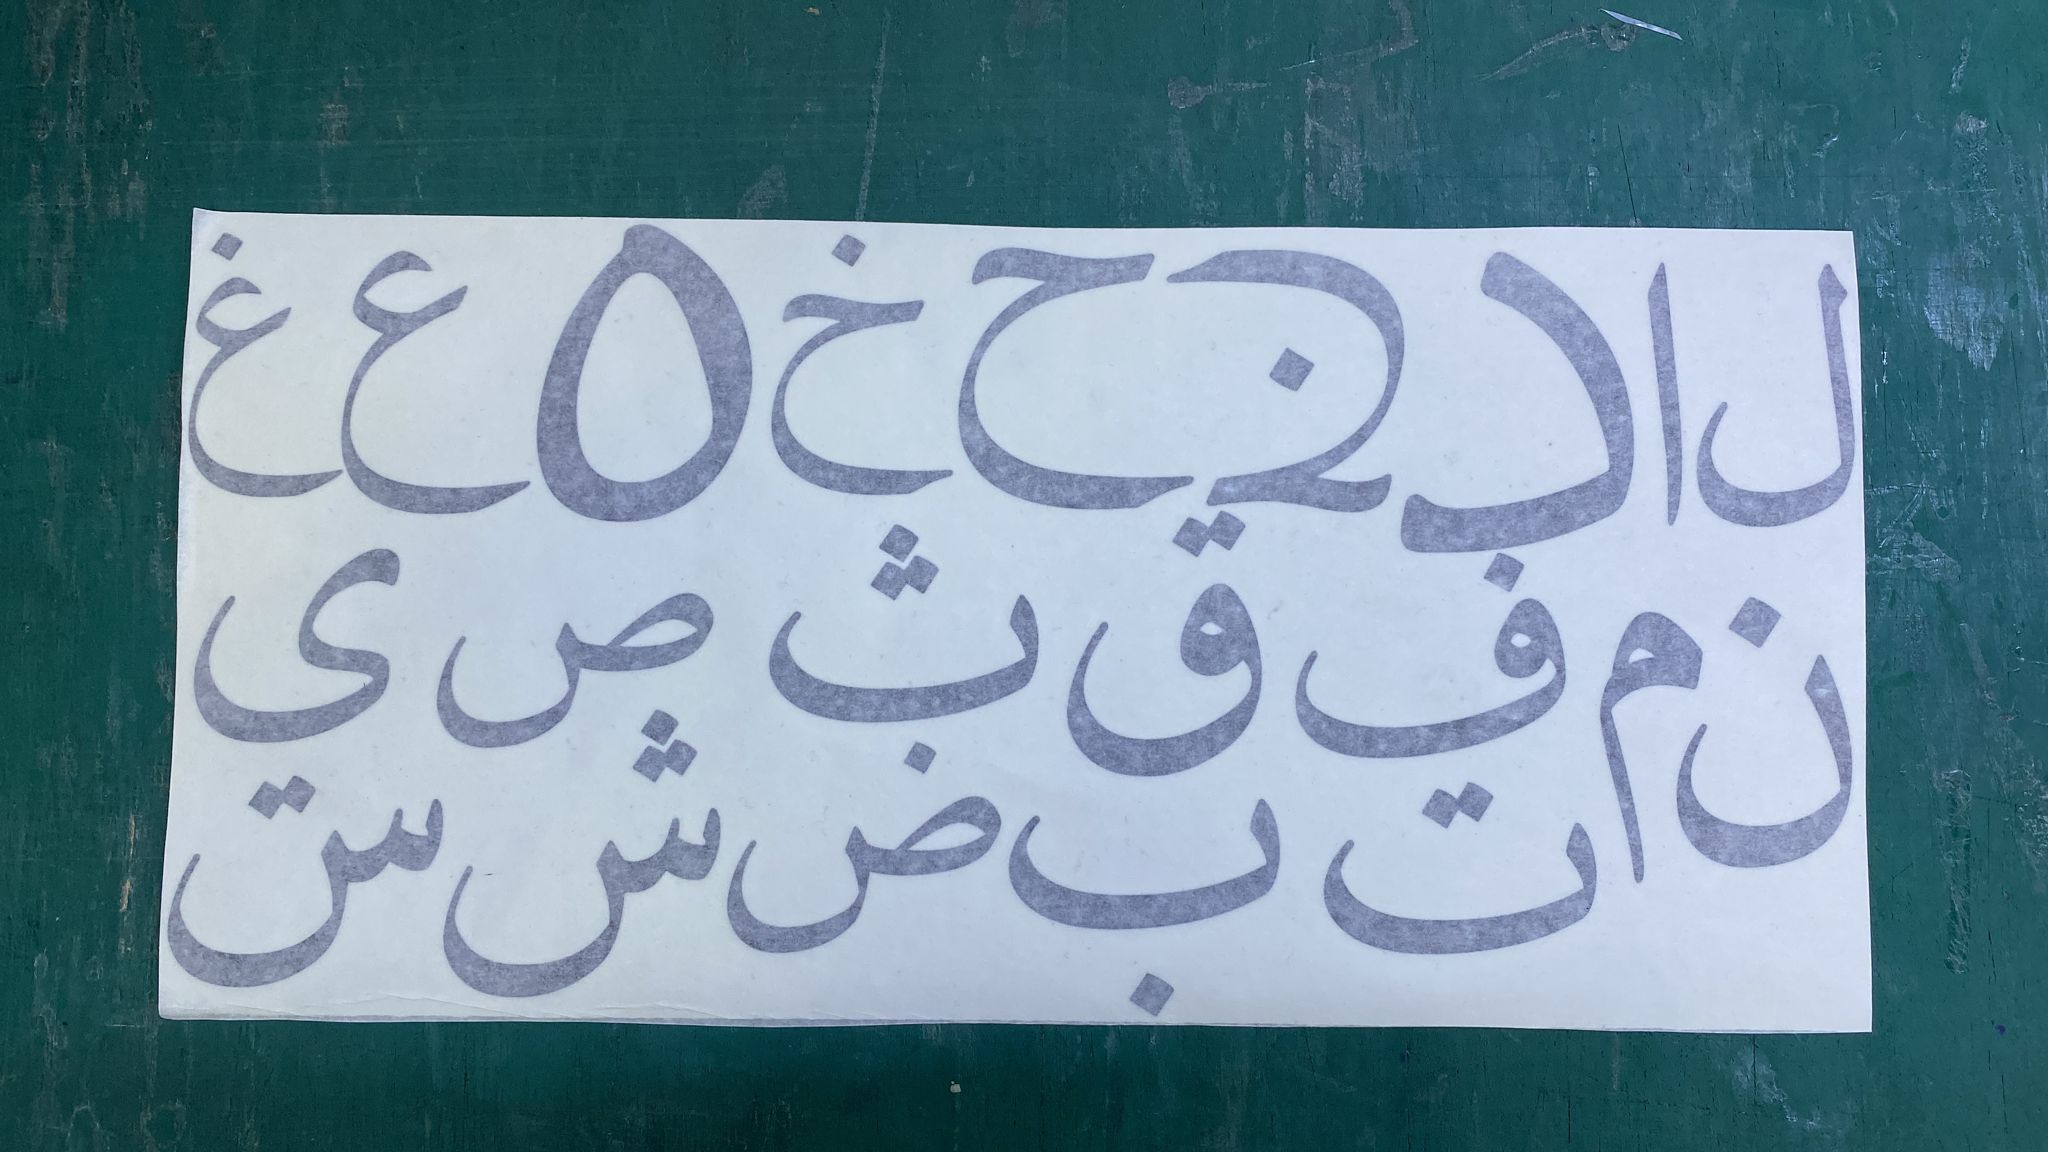 ل ا د ج ح خ ه ع غ
ن م ف ق ث ص ى
ت ب ض ش س